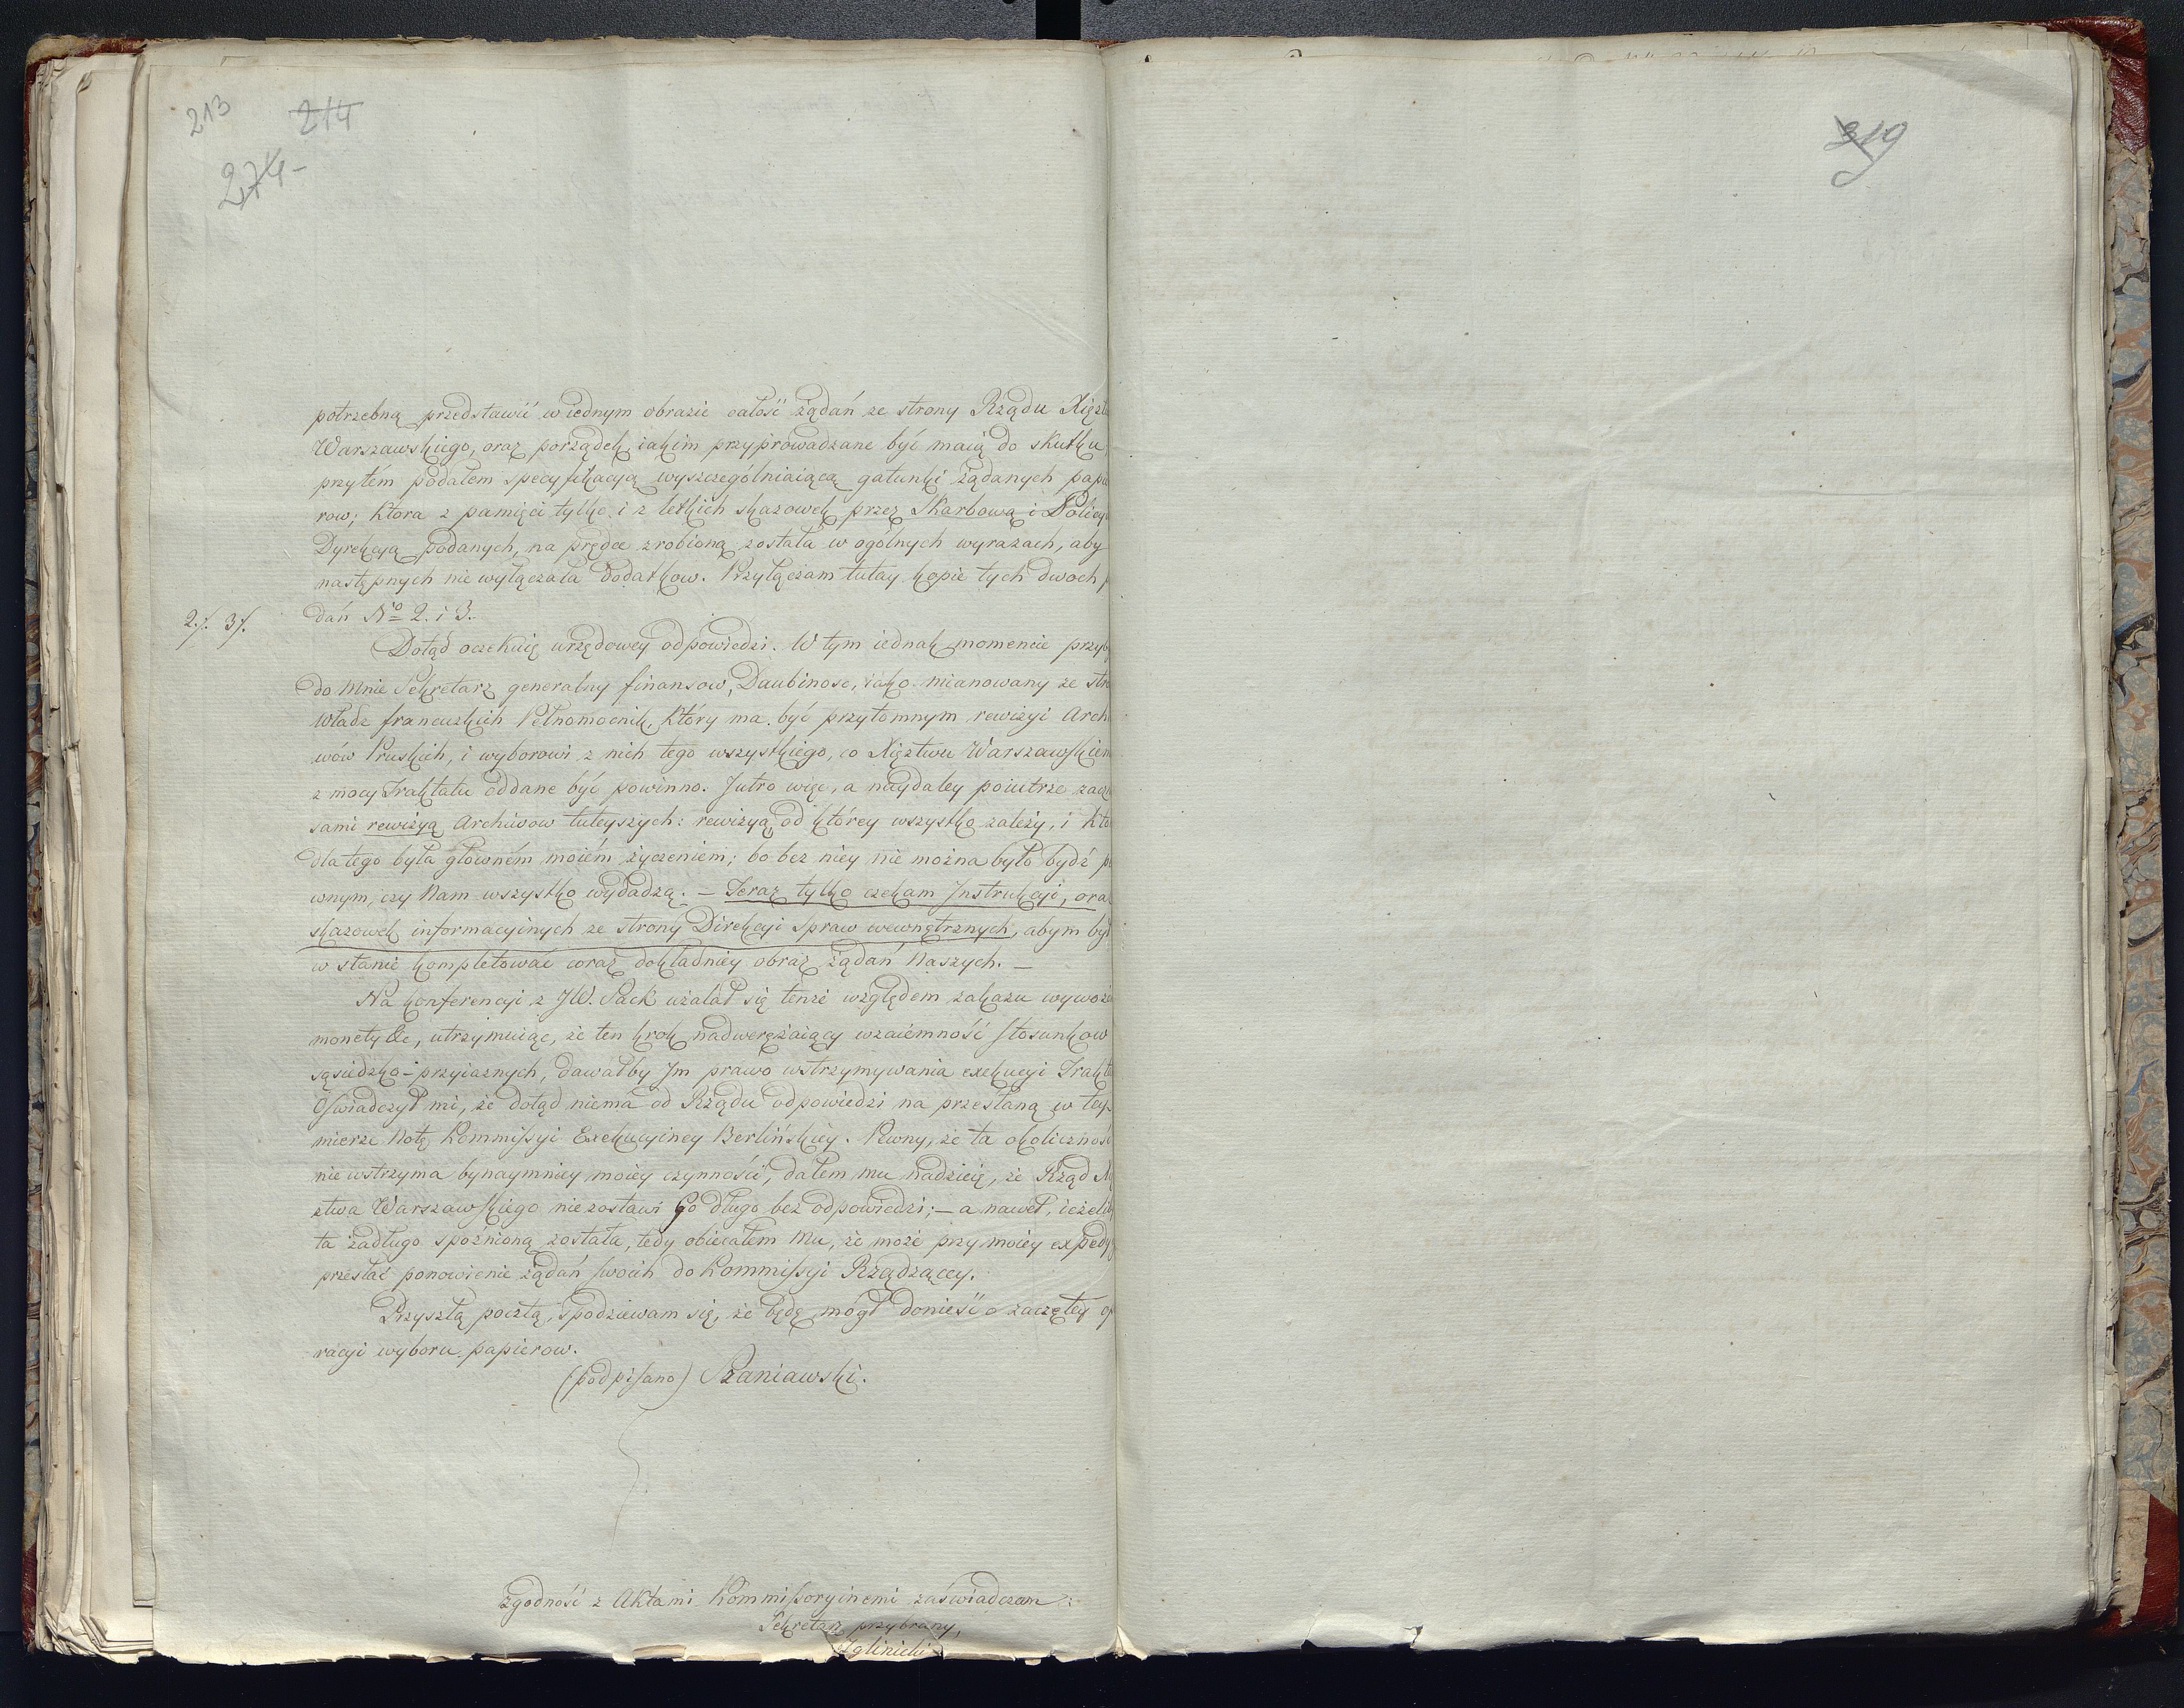 213 214
274-
potrzebną przedstawić w iednym obrazie całość żądań ze strony Rządu Xięzt
Warszawskiego, oraz porządek iakim przyprowadzane być maią do skutku,
przytém podałem specyfikacyą wyszczególniaiącą gatunki żądanych papie
row; która z pamięci tylko i z letkich skazowek przez Skarbową i Policy
Dyrekcyą podanych, na prędce zrobioną została w ogólnych wyrazach, aby
następnych nie wyłączała dodatkow. Przyłączam tutay kopie tych dwoch p
2./. 3/. dań No 2. i 3.
Dotąd oczekuię urzędowey odpowiedzi. W tym iednak momencie przyby
do mnie Sekretarz generalny finansow, Daubinosc, iako mianowany ze stro
władz francuzkich Pełnomocnik, który ma być przytomnym rewizyi Archi
wów Pruskich, i wyborowi z nich tego wszystkiego, co Xięztwu Warszawskiem
z mocy Traktatu oddane być powinno. Jutro więc, a naydaley poiutrze zacz
sami rewizyą Archiwow tuteyszych: rewizyą, od którey wszystko zależy, i któ
dla tego była głowném moiém życzeniem; bo bez niey nie można było bydź pe
wnym, czy Nam wszystko wydadzą. – Teraz tylko czekam Instrukcyi, oraz
skazowek informacyinych ze strony Direkcyi Spraw wewnętrznych, abym był
w stanie kompletować coraz dokładniey obraz żądań Naszych. –
Na konferencyi z JW. Sack użalał się tenże względem zakazu wywozu
monety &c, utrzymuiąc, że ten krok nadwerężaiący wzaiemność stosunkow
sąsiedzko-przyiaznych, dawałby Im prawo wstrzymywania exekucyi Trakta
Oświadczył mi, że dotąd niema od Rządu odpowiedzi na przesłaną w tey
mierze Notę Kommissyi Exekucyiney Berlińskiéy. Pewny, że ta okoliczność
nie wstrzyma bynaymniey moiéy czynności, dałem mu nadzieię, że Rząd Xię
ztwa Warszawskiego nie zostawi Go długo bez odpowiedzi; – a nawet, ieżeliby
ta zadługo spoznioną została, tedy obiecałem Mu, że może przy moiéy expedy
przesłać ponowienie żądań swoich do Kommissyi Rządzącey.
Przyszłą pocztą, spodziewam się, że będę mógł donieść o zaczętey op
racyi wyboru papierow.
(podpisano) Szaniawski.
Zgodność z Aktami Kommissoryinemi zaświadczam:
Sekretarz przybrany,
Zglinicki
319